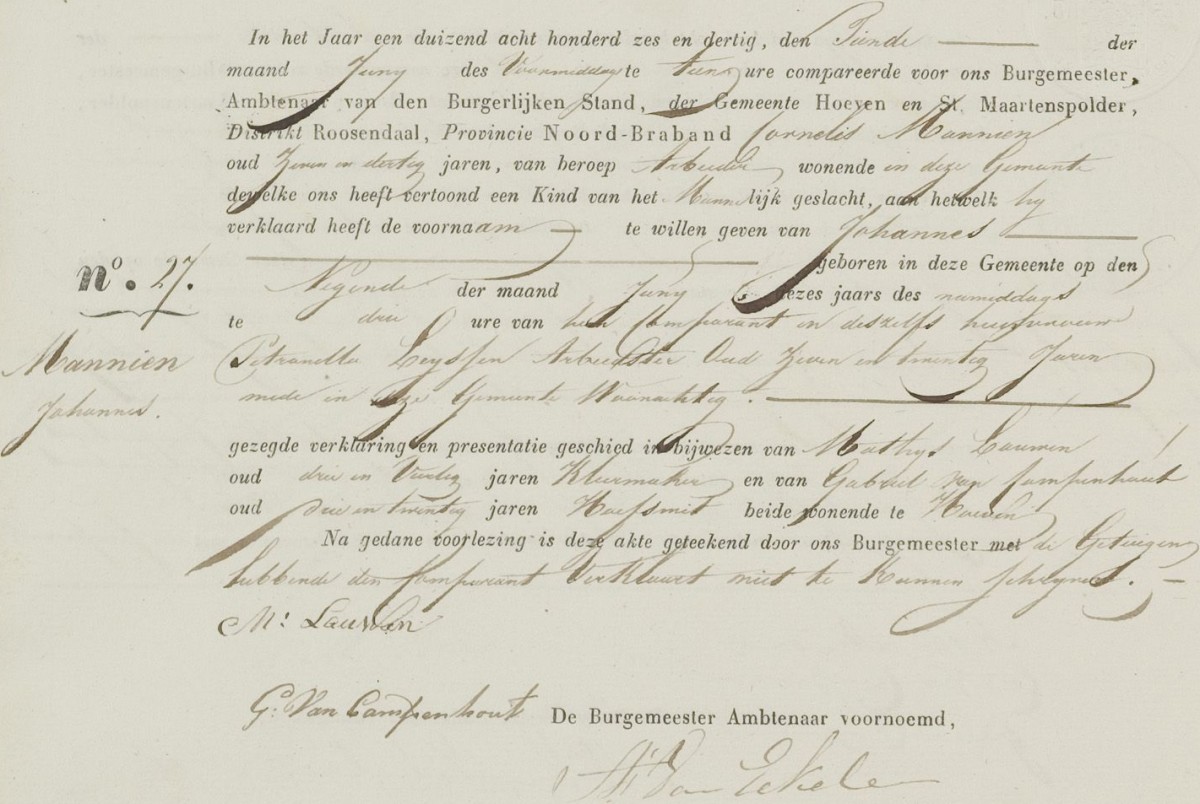 In het Jaar een duizend acht honderd zes en dertig, den Tiende der
maand Juny des Voormiddags te tien ure compareerde voor ons Burgemeester,
Ambtenaar van den Burgerlijken Stand, der Gemeente Hoeven en St. Maartenspolder,
Distrikt Roosendaal, Provincie Noord-Braband Cornelis Mannien
oud Zeven en dertig jaren, van beroep Arbeider wonende in deze Gemeente
dewelke ons heeft vertoond een Kind van het Mannelijk geslacht, aan hetwelk hy
verklaard heeft de voornaam te willen geven van Johannes
geboren in deze Gemeente op den
no. 27. Negende der maand Juny dezes jaars des namiddags
te drie ure van hem Comparant en deszelfs huisvrouw
Mannien Petronella Leyssen Arbeidster Oud Zeven en twintig Jaren
Johannes. mede in deze Gemeente Woonachtig.
gezegde verklaring en presentatie geschied in bijwezen van Mathys Lauwen
oud drie en Veertig jaren Kleermaker en van Gabriel van Campenhout
oud drie en twintig jaren Hoefsmit beide wonende te Hoeven
Na gedane voorlezing is deze akte geteekend door ons Burgemeester met de Getuigen
hebbende den Comparant Verklaart niet te Kunnen schryven.
M: Lauwen
G. Van Campenhout De Burgemeester Ambtenaar voornoemd,
Van Eekele